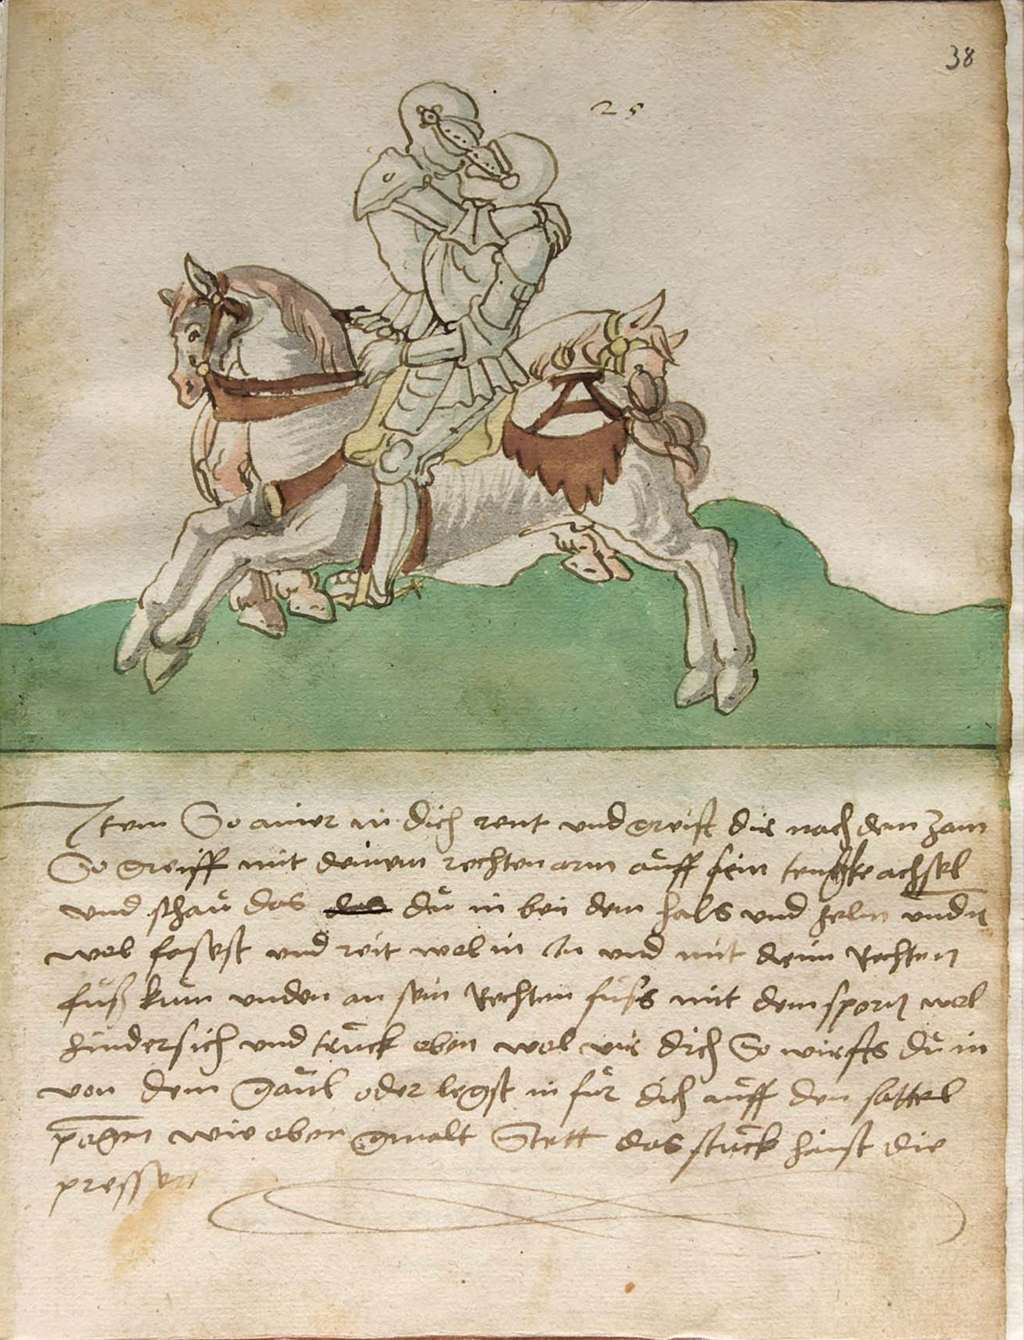 38
25
Item So ainer in dich rent und greift dir nach dem zam
So greiff mit deinem rechten arm auff sein tengke achsel
und schaů das du in bei dem hals und helm
wol fasest und reit wol in In und mit deim Rechten
fůß kum unden an sein Rechten fuss mit dem sporn wol
hindersich und truck oben wol uir dich So wirfts dů in
von dem gaůl oder legst in für dich auff den sattel
pogen wie oben gmalt Stett das stůck haist die
presser